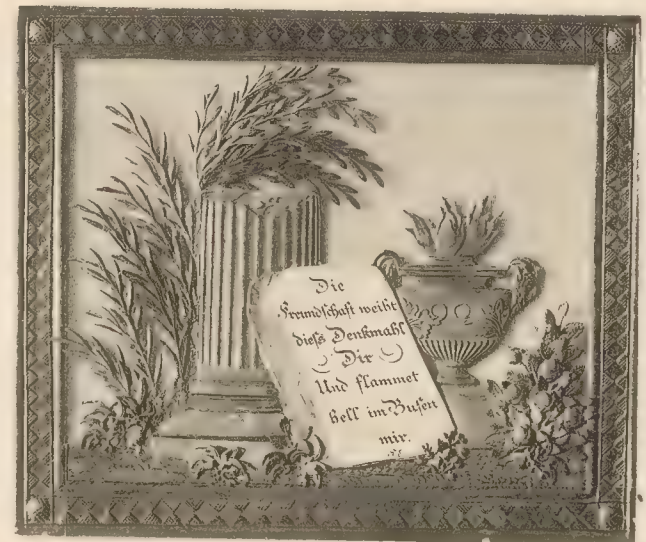 Die
Freundschaft weiht
dieſs Denkmahl
Dir
Und flammet
hell im Buſen
mir.